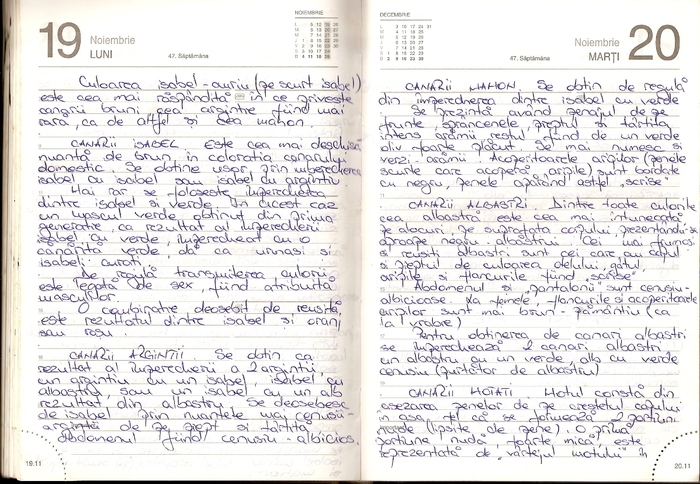 19
Noiembrie
LUNI
47. Săptămâna
NOIEMBRIE
Culoarea isabel-auriu (pe scurt isabel)
este cea mai răspândită în ce privește
canarii bruni, cea argintie fiind mai
rară, ca de altfel și cea mahon.
CANARII ISABEL Este cea mai deschisă
nuanță de brun, în colorația canarului
domestic. Se obține ușor prin împerecherea
isabel cu isabel sau isabel cu argintiu.
Mai rar se folosește împerecherea
dintre isabel și verde. În acest caz
un mascul verde obținut din prima
generație, ca rezultat al împerecherii
isabel cu verde, împerecheat cu o
canăriță verde, dă ca urmași și
isabeli aurați.
De regulă transmiterea culorii
este legată de sex, fiind atribuită
masculilor.
O combinație deosebit de reușită,
este rezultatul dintre isabel și oranj
sau roșu.
CANARII ARGINTII Se obțin ca
rezultat al împerecherii a 2 argintii,
un argintiu cu un isabel, isabel cu
albastru, sau un isabel cu un alb
rezultat din albastru. Se deosebesc
de isabel prin nuanțele mai cenușiu-
argintii de pe piept și târtiță
abdomenul fiind cenușiu-albicios.
19.11
DECEMBRIE
Noiembrie
MARȚI
20
47. Săptămâna
CANARII MAHON. Se obțin de regulă
din împerecherea dintre isabel cu verde
Se prezintă având penajul de pe
frunte, sprâncenele, pieptul și târtița
intens arămii restul fiind de un verde
oliv foarte plăcut. Se mai numesc și
verzi-arămii. Acoperitoarele aripilor (penele
scurte care acoperă aripile) sunt bordate
cu negru, penele apărând astfel "scrise"
CANARII ALBAȘTRI Dintre toate culorile
cea albastră este cea mai întunecată
pe alocuri, pe suprafața capului prezentându-se
aproape negru-albăstrui. Cei mai frumoși
și reușiți albaștri sunt cei care au capul
și pieptul de culoarea oțelului, gâtul,
aripile și flancurile fiind "scrise"
Abdomenul și "pantalonii" sunt cenușiu-
albicioase. La femele flancurile și acoperitoarele
aripilor sunt mai brun-pământiu (ca
la vrabie)
Pentru obținerea de canari albaștri
se împerechează 2 canari albaștri
un albastru cu un verde, alb cu verde
cenușiu (purtător de albastru)
CANARII MOȚATI Moțul constă din
așezarea penelor de pe creștetul capului
în așa fel că se formează 2 porțiuni
nude (lipsite de pene). O primă
porțiune nudă, foarte mică, este
reprezentată de "vârtejul moțului" în
20.11